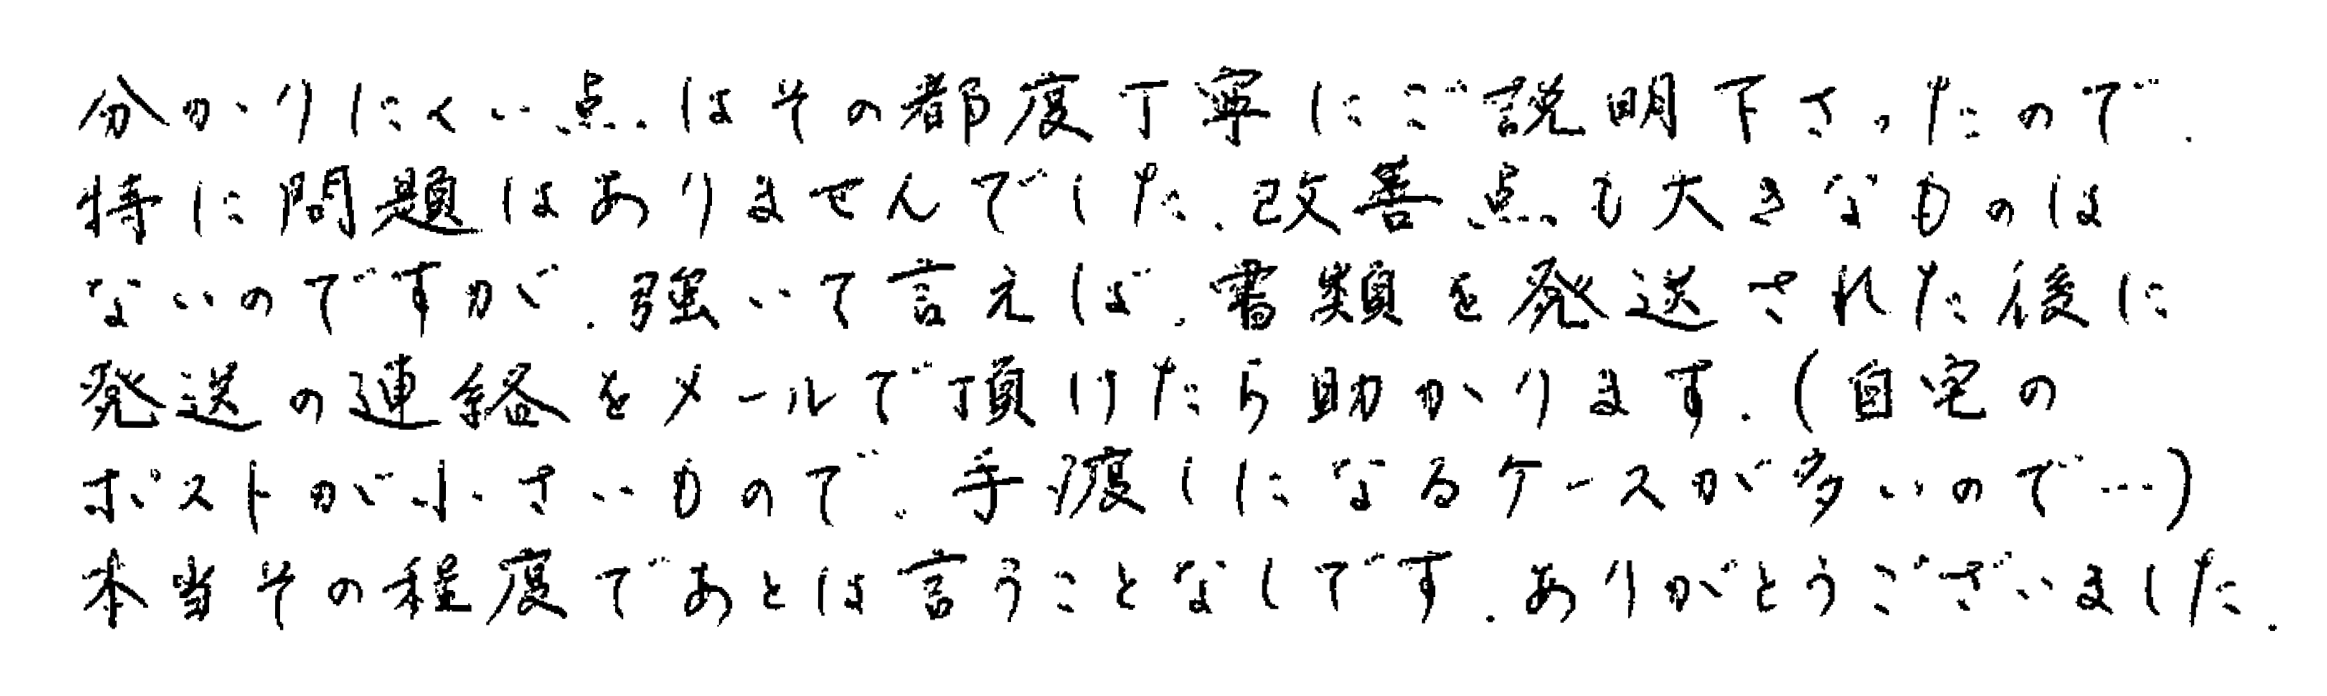 分かりにくい点はその都度丁寧にご説明下さったので.
特に問題はありませんでした.改善点も大きなものは
ないのですが.強いて言えば.書類を発送された後に
発送の連絡をメールで頂けたら助かります.(自宅の
ポストが小さいもので.手渡しになるケースが多いので…)
本当その程度であとは言うことなしです.ありがとうございました.